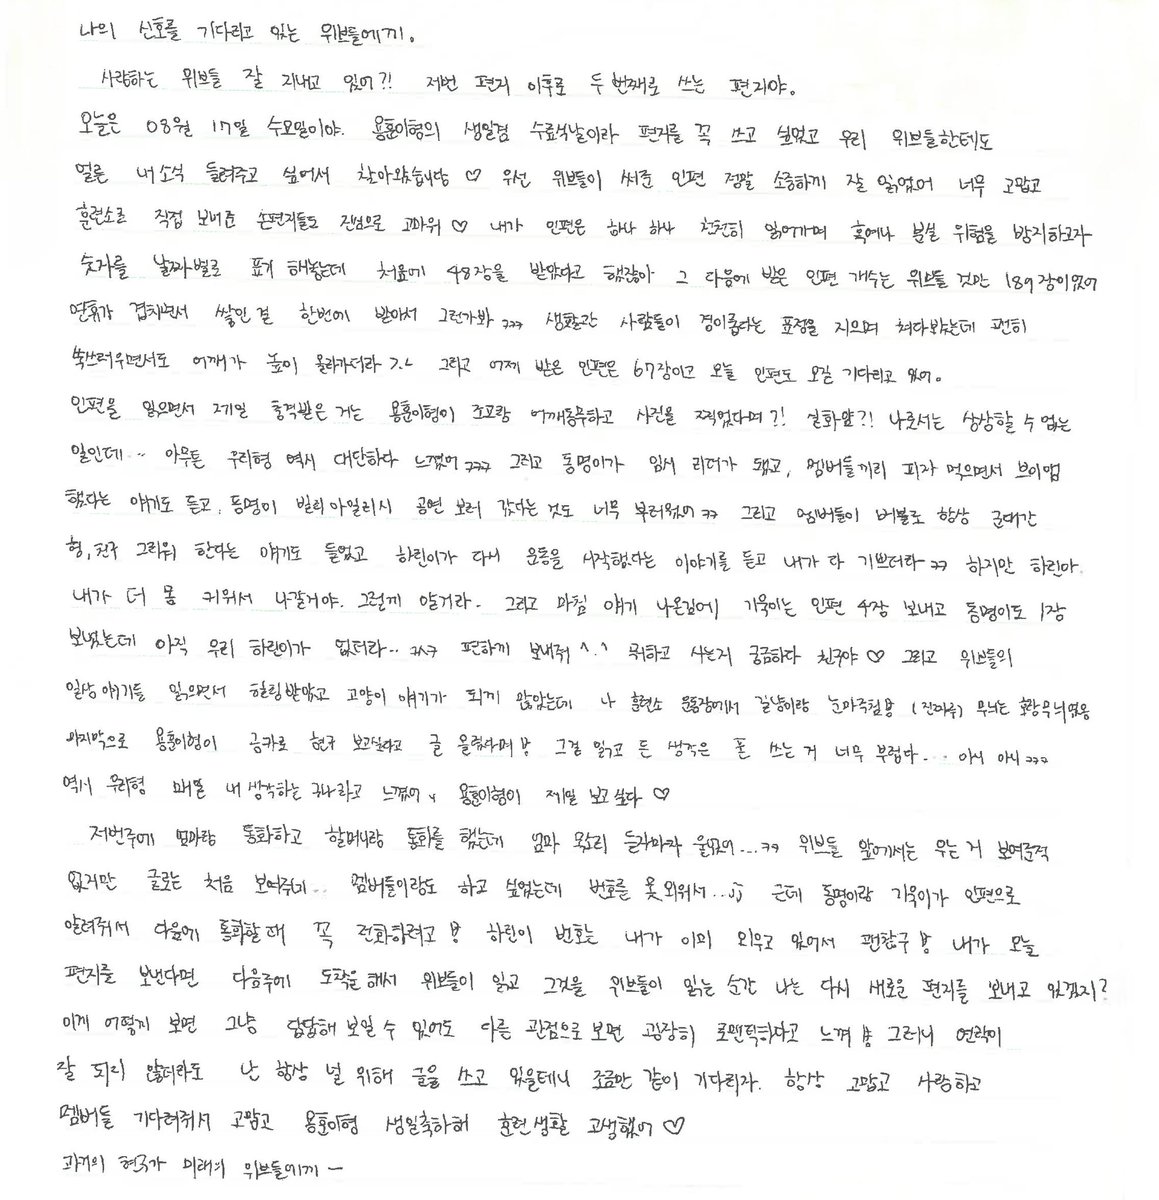 나의 신호를 기다리고 있는 위브들에게.
사랑하는 위브들 잘 지내고 있어?! 저번 편지 이후로 두번째로 쓰는 편지야.
오늘은 08월 17일 수요일이야. 용훈이형의 생일겸 수료식날이라 편지를 꼭 쓰고 싶었고 우리 위브들한테도
얼른 내소식 들려주고 싶어서 찾아왔습니당 ♡ 우선 위브들이 써준 인편 정말 소중하게 잘 읽었어 너무 고맙고
훈련소로 직접 보내준 손편지들도 진심으로 고마워 ♡ 내가 인편은 하나 하나 천천히 읽어가며 혹여나 분실 위험을 방지하고자
숫자를 날짜별로 표기 해놨는데 처음에 48장을 받았다고 했잖아 그 다음에 받은 인편 개수는 위브들 것만 189장이었어
연휴가 겹치면서 쌓인 걸 한번에 받아서 그런가봐 ㅋㅋㅋ 생활관 사람들이 경이롭다는 표정을 지으며 쳐다봤는데 괜히
쑥쓰러우면서도 어깨가 높이 올라가더라 ㅋㅋ 그리고 어제 받은 인편은 67장이고 오늘 인편도 오길 기다리고 있어.
인편을 읽으면서 제일 충격받은 거는 용훈이형이 조교랑 어깨동무하고 사진을 찍었다며?! 실화야?! 나로서는 상상할 수 없는
일인데.. 아무튼 우리형 역시 대단하다 느꼈어 ㅋㅋㅋ 그리고 동명이가 임시 리더가 됐고, 멤버들끼리 피자 먹으면서 브이앱
했다는 얘기도 듣고, 동명이 빌리아일리시 공연 보러 갔다는 것도 너무 부러웠어 ㅋㅋ 그리고 멤버들이 버블로 항상 군대간
형, 친구 그리워 한다는 얘기도 들었고 하린이가 다시 운동을 시작했다는 이야기를 듣고 내가 다 기쁘더라 ㅋㅋ 하지만 하린아
내가 더 몸 키워서 나갈거야. 그렇게 알거라. 그리고 마침 얘기 나온김에 기욱이는 인편 4장 보내고 동명이도 1장
보냈는데 아직 우리 하린이가 없더라.. ㅋㅅㅋ 편하게 보내줘 ^.^ 뭐하고 사는지 궁금하다 친구야 ♡ 그리고 위브들의
일상 얘기들 읽으면서 힐링받았고 고양이 얘기가 되게 많았는데 나 훈련소 운동장에서 길냥이랑 눈마주침! (진짜루) 무늬는 호랑무늬였음
마지막으로 용훈이형이 공카로 현구 보고싶다고 글 올렸다며! 그걸 읽고 든 생각은 폰 쓰는 거 너무 부럽다... 아시 아시 ㅋㅋㅋ
역시 우리형 매일 내 생각하는 구나라고 느꼈어 용훈이형이 제일 보고싶다 ♡
저번주에 엄마랑 통화하고 할머니랑 통화를 했는데 엄마 목소리 듣자마자 울었어... ㅋㅋ 위브들 앞에서는 우는 거 보여준적
없지만 글로는 처음 보여주네... 멤버들이랑도 하고 싶었는데 번호를 못 외워서... 근데 동명이랑 기욱이가 인편으로
알려줘서 다음에 통화할때 꼭 전화하려고! 하린이 번호는 내가 이미 외우고 있어서 괜찮구! 내가 오늘
편지를 보낸다면 다음주에 도착을 해서 위브들이 읽고 그것을 위브들이 읽는 순간 나는 다시 새로운 편지를 보내고 있겠지?
이게 어떻게 보면 그냥 답답해 보일 수 있어도 다른 관점으로 보면 굉장히 로맨틱하다고 느껴! 그러니 연락이
잘 되지 않더라도 난 항상 널 위해 글을 쓰고 있을테니 조금만 같이 기다리자. 항상 고맙고 사랑하고
멤버들 기다려줘서 고맙고 용훈이형 생일축하해 훈련생활 고생했어 ♡
과거의 현구가 미래의 위브들에게 ㅡ